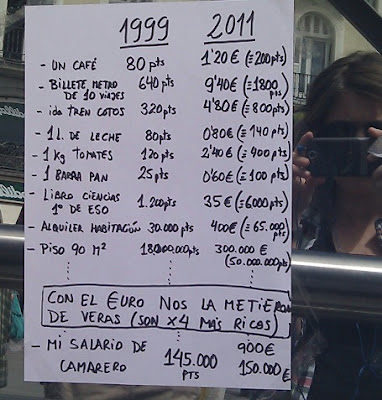 1999 2011
- UN CAFÉ 80 pts 1'20 € (=200 pts)
- BILLETE METRO DE 10 VIAJES 640 pts 9'40€ (=1800 pts)
- ida TREN COTOS 320 pts 4'80€ (=800 pts)
- 1 L. DE LECHE 80 pts 0'80€ (=140 pts)
- 1 Kg TOMATES 120 pts 2'40€ (=400 pts)
- 1 BARRA PAN 25 pts 0'60€ (=100 pts)
- LIBRO CIENCIAS 1º DE ESO 1.200 pts 35 € (=6000 pts)
- ALQUILER HABITACIÓN 30.000 pts 400€ (=65.000 pts)
- PISO 90 M² pts 300.000 € (50.000.000 pts)
CON EL €URO NOS LA METIERON
DE VERAS (SON X4 MÁS RICOS)
- MI SALARIO DE CAMARERO 145.000 PTS 900€ 150.000 €